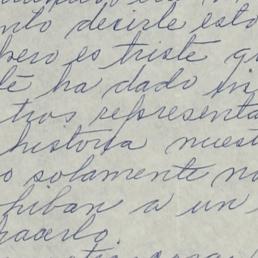 nto decirle esto
pero es triste q
ha dado
tros representa
historia nuest
o solamente n
hiban a un
hacerlo.